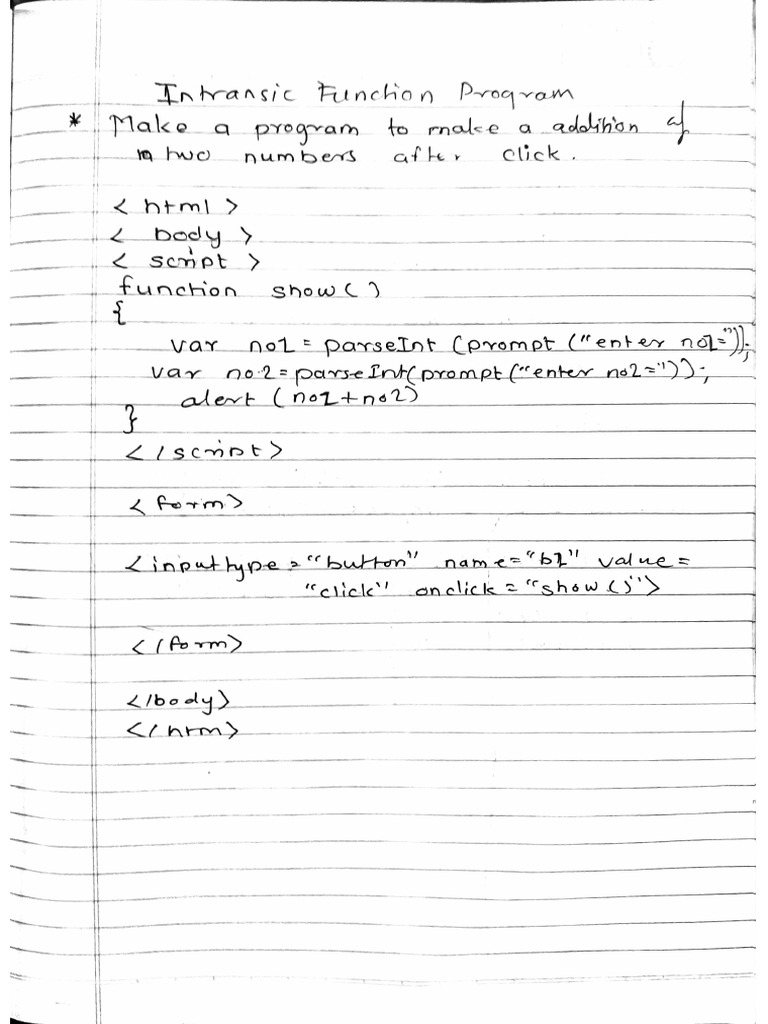 Intransic Function Program
* Make a program to make a addition of
two numbers after click.
< html >
< body >
< script >
function show()
{
var no1 = parseInt (prompt ("enter no1="));
var no.2 = parseInt(prompt("enter no2="));
alert (no1+no2)
}
</script>
<form>
<inputtype="button" name="b1" value=
"click" onclick="show()">
</form>
</body>
</htm>